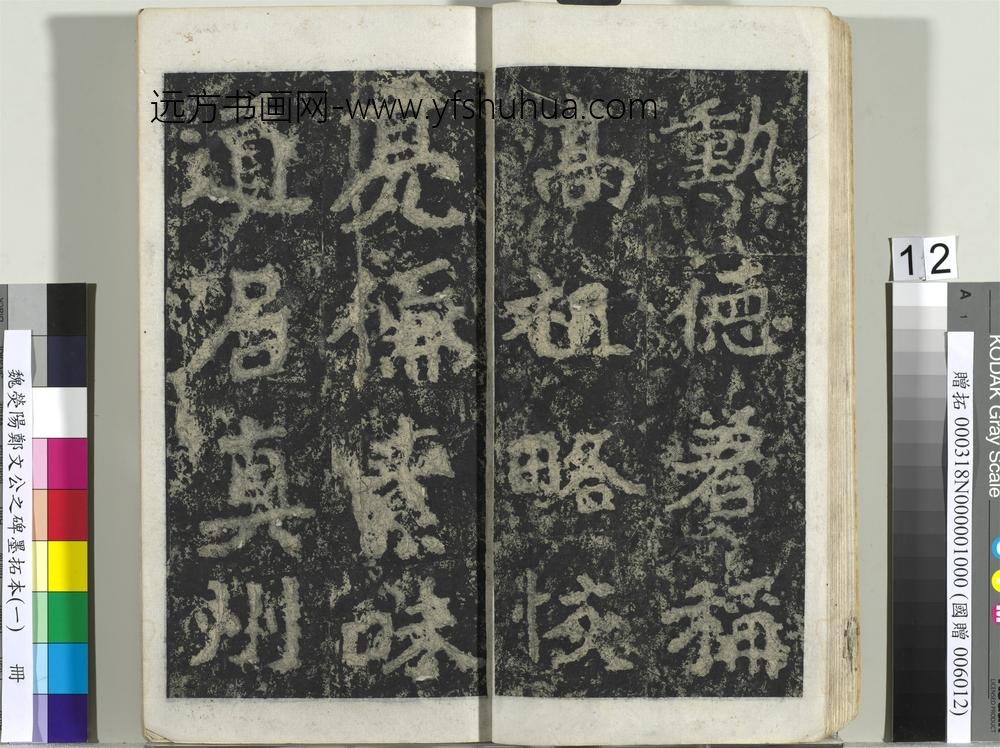 勳德著稱
高祖略恢
亮儒素味
道居真州
远方书画网-www.yfshuhua.com
魏滎陽鄭文公之碑墨拓本(一) 冊
12
贈拓 000318N000001000 (國贈 006012)
KODAK Gray Scale
A 1